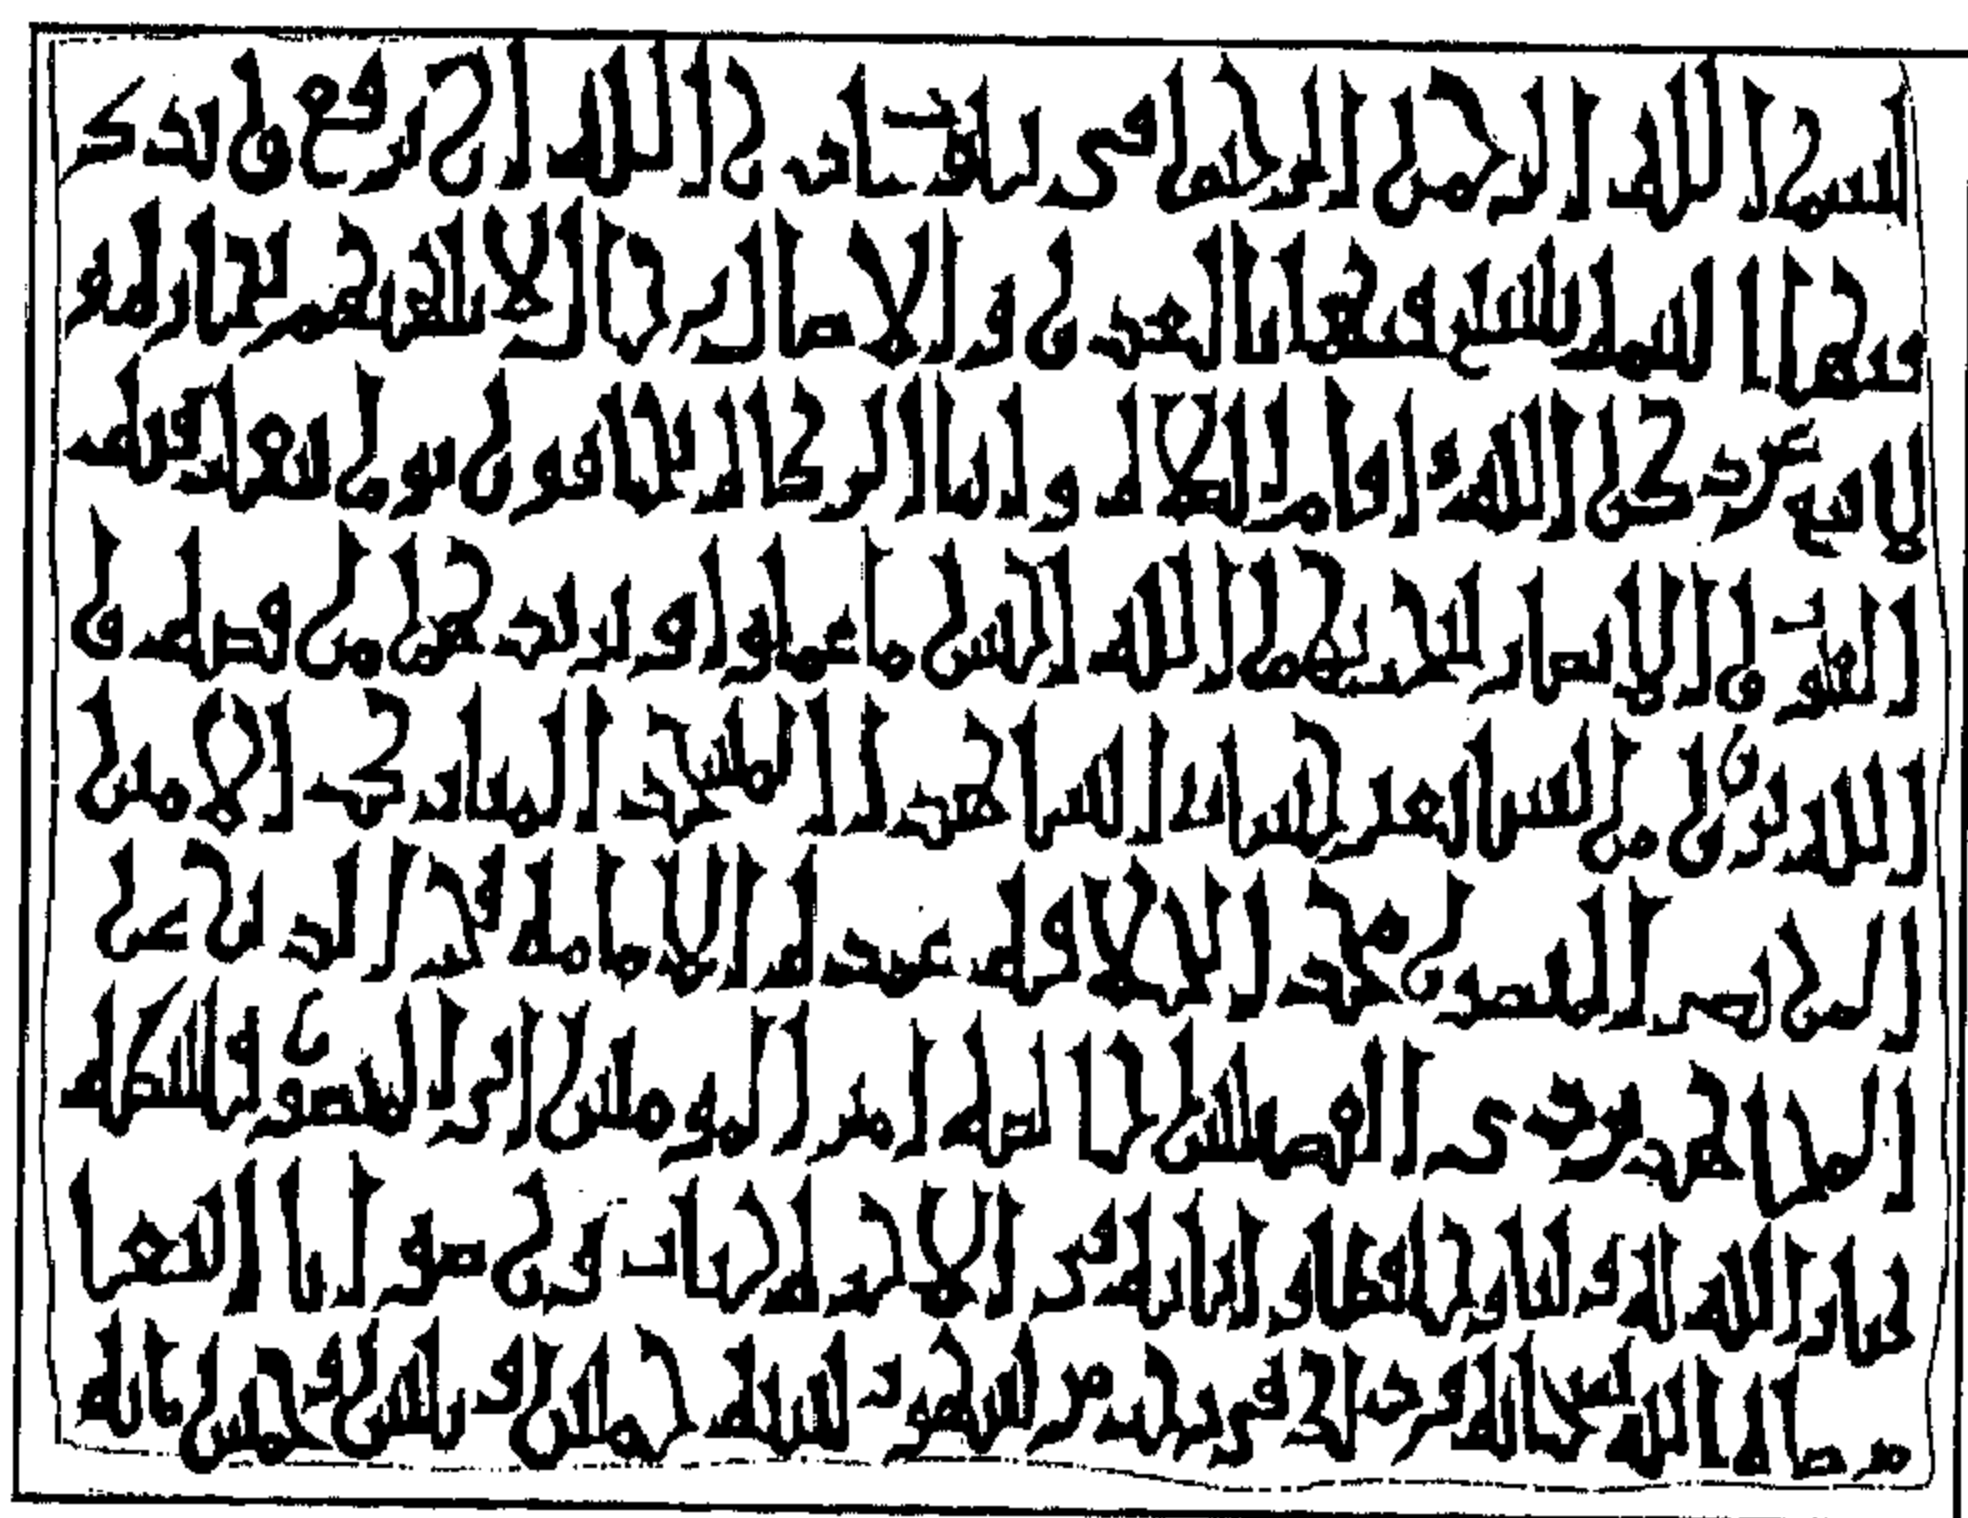 بسم الله الرحمن الرحيم في بيوت اذن الله ان ترفع ويذكر
فيها اسمه يسبح فيها بالغدو والاصال رجال لا تلهيهم تجارة و
لا بيع عن ذكر الله واقام الصلاة وايتا الزكاة يخافون يوما تتقلب فيه
القلوب والابصار ليجزيهم الله احسن ما عملوا ويزيدهم من فضله و
الله يرزق من يشا بغير حساب انشا هذا المسجد المبارك الامير
المنصور مجد الخلافة عمدة الامامة فخر الدين عز
المجاهدين ذي الفضيلتين خالصة امير المؤمنين ابو المنصور
الله له في الاخرة ابتغا
مرضاة الله سبحانه وذلك في رجب من شهور سنة خمس وثلثين وخمس مائة